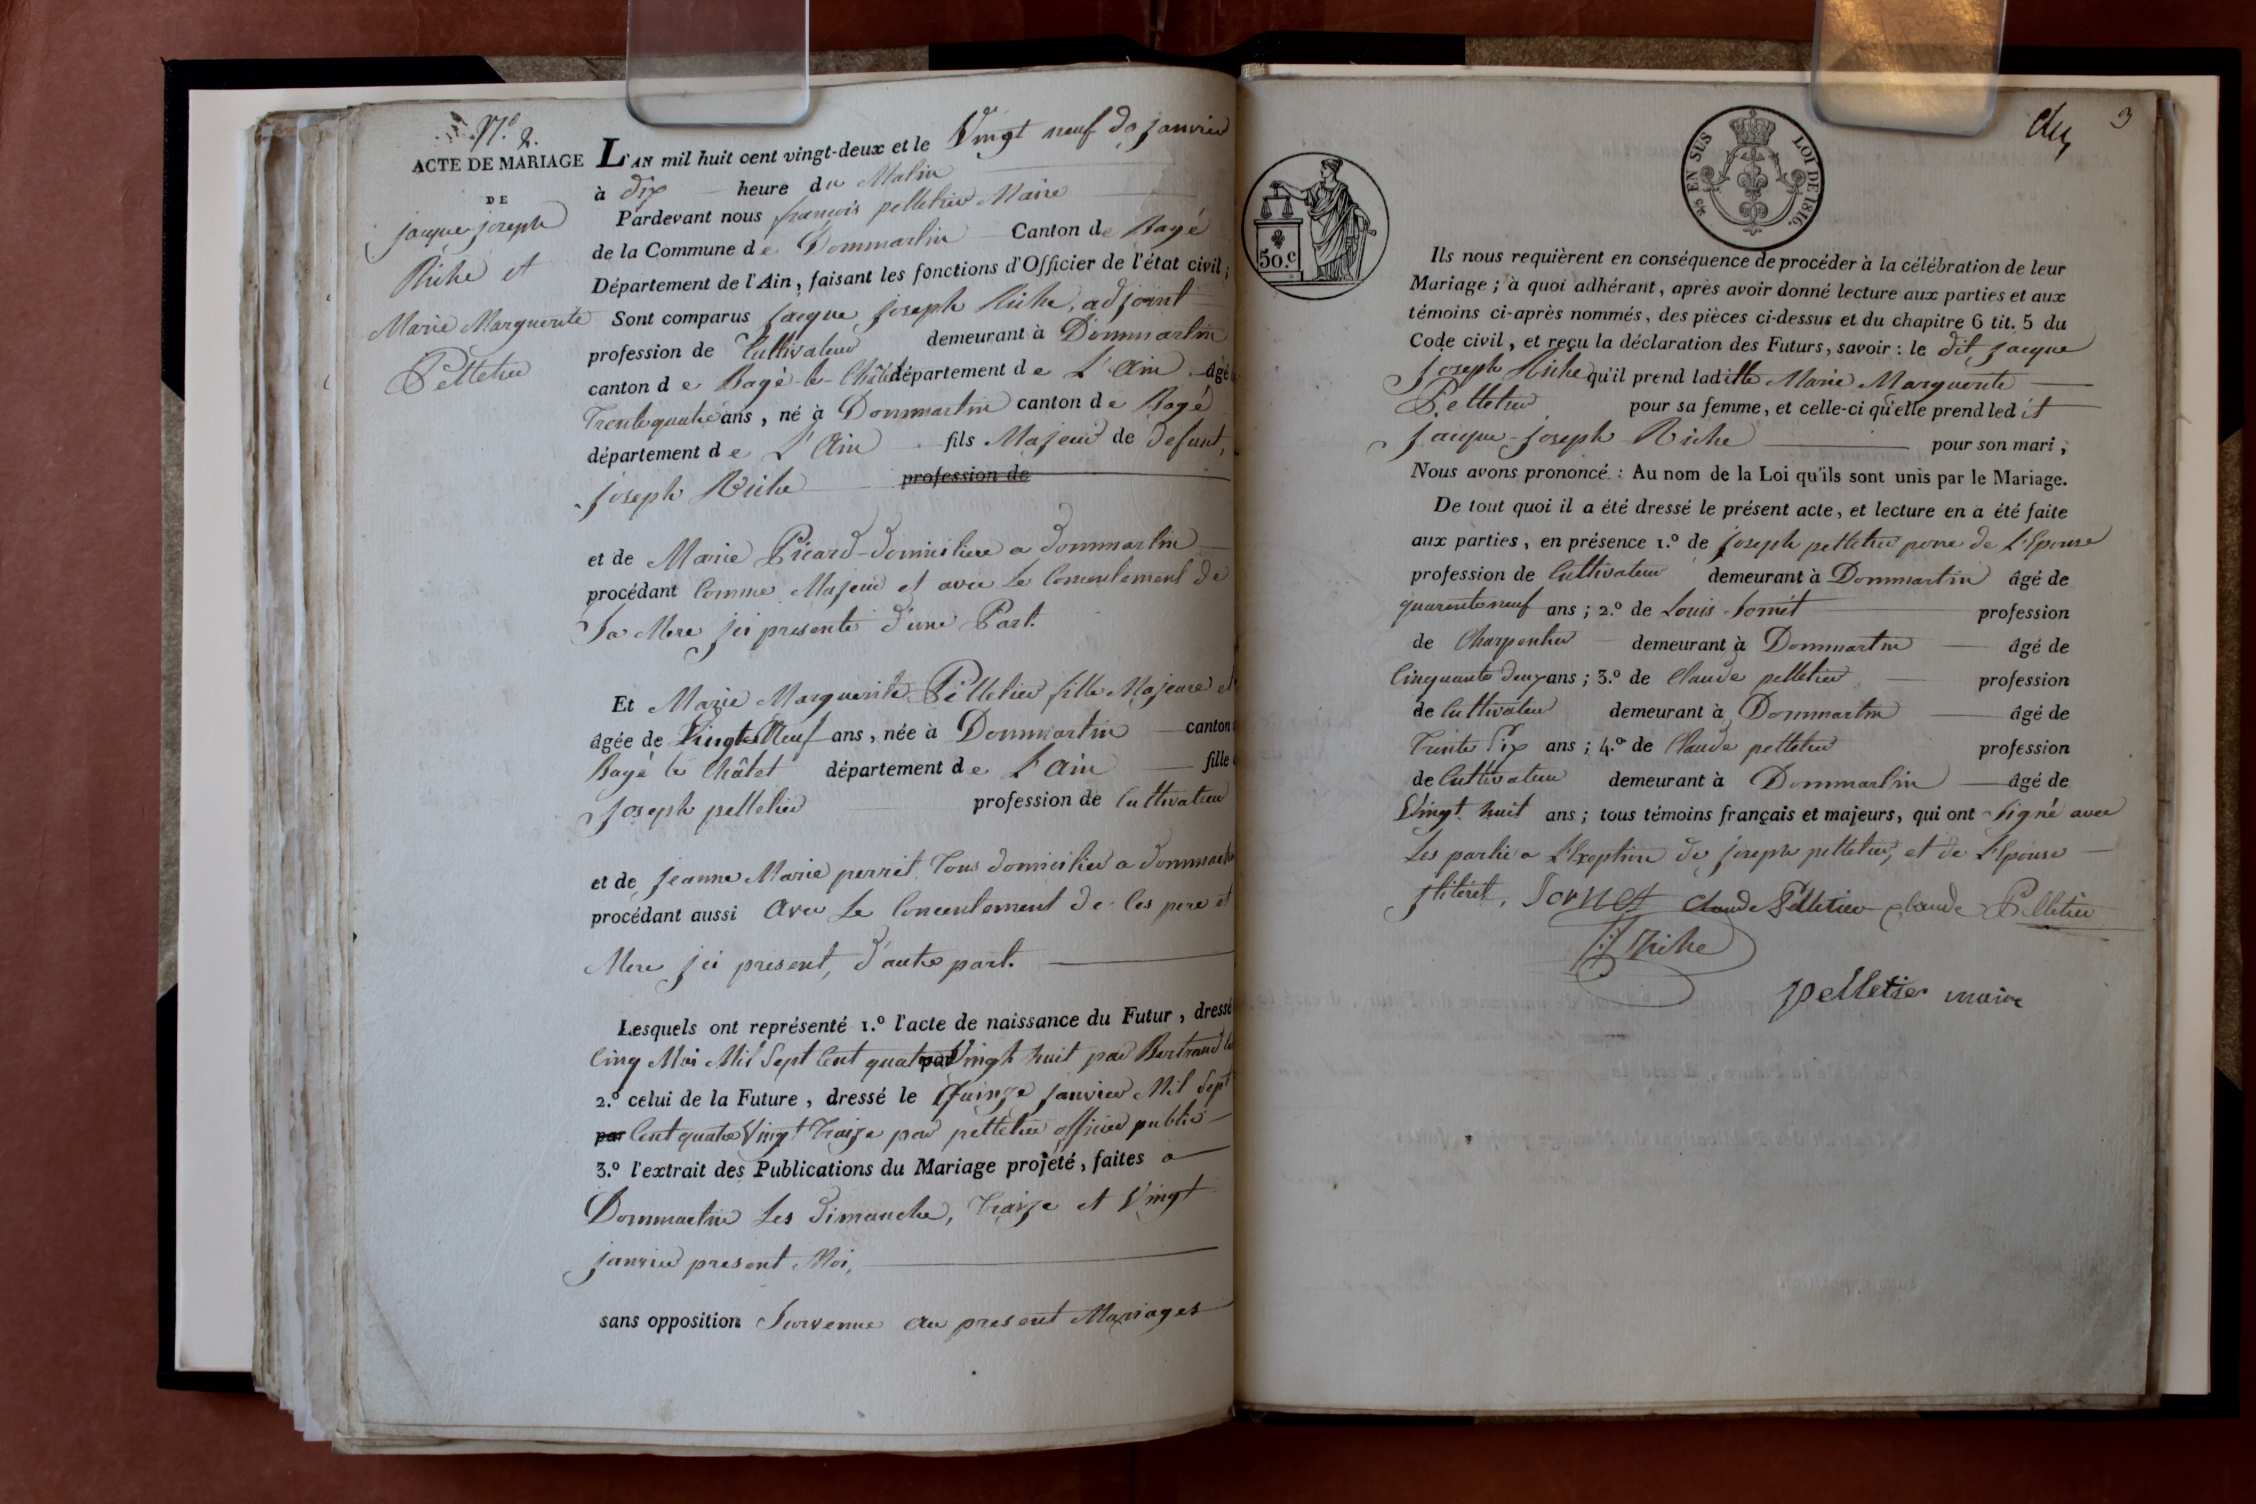 N.º 2.
ACTE DE MARIAGE
DE
jacque joseph
Riche et
Marie Marguerite
Pelletier
L'AN mil huit cent vingt-deux et le Vingt neuf de janvier
à dix heure du Matin
Pardevant nous françois pelletier Maire
de la Commune de Dommartin Canton de Bagé
Département de l'Ain, faisant les fonctions d'Officier de l'état civil;
Sont comparus jacque joseph Riche, adjoint
profession de Cultivateur demeurant à Dommartin
canton de Bagé-le-Châtel département de L'Ain âgé
Trente quatre ans, né à Dommartin canton de Bagé
département de L'Ain fils Majeur de defunt,
joseph Riche profession de
et de Marie Picard domiciliere a dommartin
procédant Comme Majeur et avec Le Concentement de
Sa Mere jci presente d'une Part.
Et Marie Marguerite Pelletier fille Majeure et
âgée de Vingt Neuf ans, née à Dommartin canton
Bagé le Châtel département de L'Ain fille
joseph pelletier profession de Cultivateur
et de jeanne Marie perret Tous domicilier a dommartin
procédant aussi Avec Le Concentement de Ces pere et
Mere jci present, d'autre part.
Lesquels ont représenté 1.º l'acte de naissance du Futur, dressé
Cinq Mai Mil Sept Cent quatre par Vingt huit par Bertrand
2.º celui de la Future, dressé le Quinze janvier Mil Sept
par Cent quatre Vingt Traize par pelletier officier public
3.º l'extrait des Publications du Mariage projeté, faites a
Dommartin Les dimanche, Traize et Vingt
janvier present Moi,
sans opposition Survenue au present Mariages
3
EN SUS
LOI DE 1816.
50.c
Ils nous requièrent en conséquence de procéder à la célébration de leur
Mariage; à quoi adhérant, après avoir donné lecture aux parties et aux
témoins ci-après nommés, des pièces ci-dessus et du chapitre 6 tit. 5 du
Code civil, et reçu la déclaration des Futurs, savoir: le dit jacque
joseph Riche qu'il prend laditte Marie Marguerite
Pelletier pour sa femme, et celle-ci qu'elle prend ledit
jacque-joseph Riche pour son mari;
Nous avons prononcé: Au nom de la Loi qu'ils sont unis par le Mariage.
De tout quoi il a été dressé le présent acte, et lecture en a été faite
aux parties, en présence 1.º de joseph pelletier perre de L'Epouse
profession de Cultivateur demeurant à Dommartin âgé de
quarente neuf ans; 2.º de Louis Sornét profession
de Charpentier demeurant à Dommartin âgé de
Cinquante deux ans; 3.º de Claude pelletier profession
de Cultivateur demeurant à Dommartin âgé de
Trente Six ans; 4.º de Claude pelletier profession
de Cultivateur demeurant à Dommartin âgé de
Vingt huit ans; tous témoins français et majeurs, qui ont Signé avec
Les partie a L'Exeption de joseph pelletier, et de L'Epouse
jliteret. Sornet Claude Pelletier claude Pelletier
JJ Riche
pelletier maire